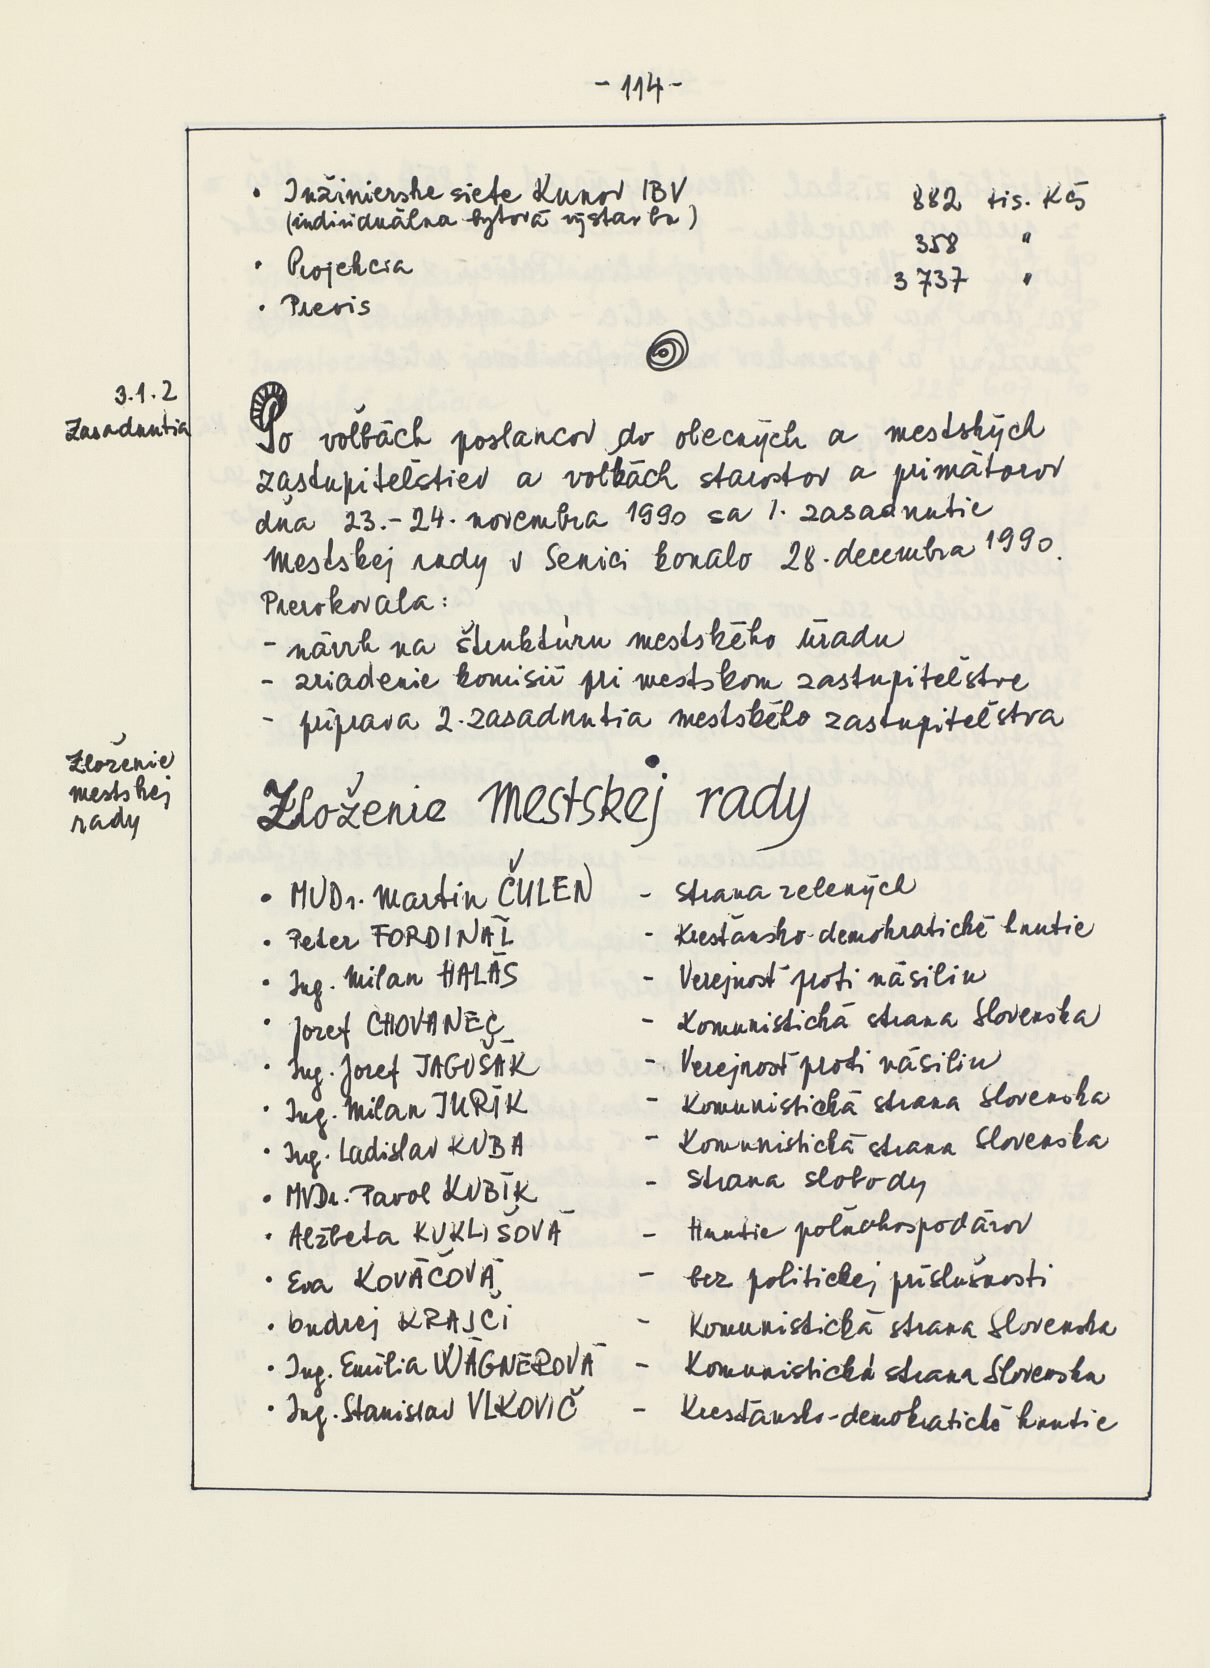 - 114 -
• Inžinierske siete Kunov IBV 882 tis. Kčs
(individuálna bytová výstavba)
• Projekcia 358 "
• Previs 3 737 "
3.1.2
Zasadnutia
Po voľbách poslancov do obecných a mestských
zastupiteľstiev a voľbách starostov a primátorov
dňa 23.-24. novembra 1990 sa 1. zasadnutie
Mestskej rady v Senici konalo 28. decembra 1990.
Prerokovala:
- návrh na štruktúru mestského úradu
- zriadenie komisií pri mestskom zastupiteľstve
- príprava 2. zasadnutia mestského zastupiteľstva
Zloženie
mestskej
rady
Zloženie Mestskej rady
• MVDr. Martin ČULEN - Strana zelených
• Peter FORDINÁL - Kresťansko-demokratické hnutie
• Ing. Milan HALÁS - Verejnosť proti násiliu
• Jozef CHOVANEC - Komunistická strana Slovenska
• Ing. Jozef JAGUŠÁK - Verejnosť proti násiliu
• Ing. Milan JURÍK - Komunistická strana Slovenska
• Ing. Ladislav KUBA - Komunistická strana Slovenska
• MVDr. Pavol KUBÍK - Strana slobody
• Alžbeta KUKLIŠOVÁ - Hnutie poľnohospodárov
• Eva KOVÁČOVÁ - bez politickej príslušnosti
• Ondrej KRAJČI - Komunistická strana Slovenska
• Ing. Emília WÁGNEROVÁ - Komunistická strana Slovenska
• Ing. Stanislav VLKOVIČ - Kresťansko-demokratické hnutie